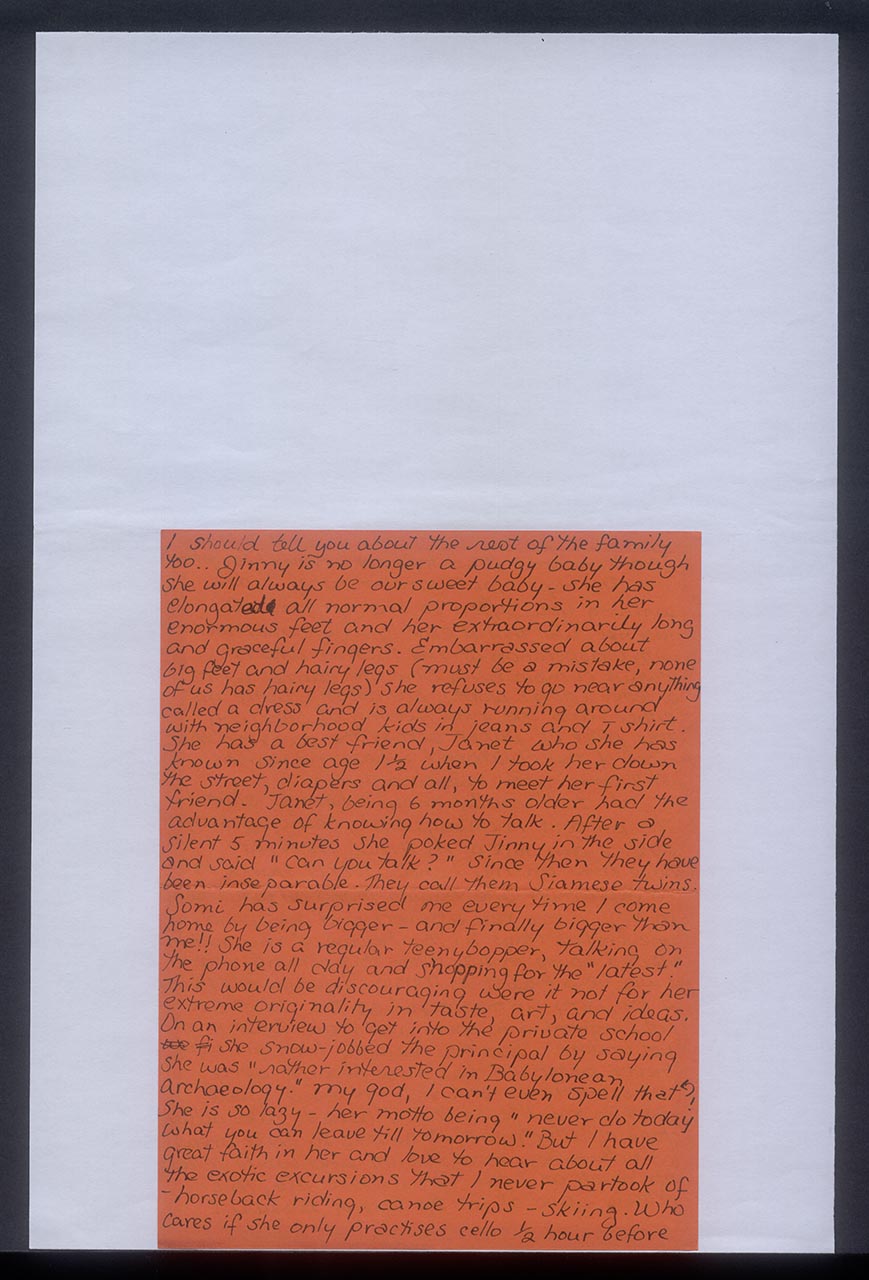 I should tell you about the rest of the family
too.. Jinny is no longer a pudgy baby though
she will always be our sweet baby - she has
elongated all normal proportions in her
enormous feet and her extraordinarily long
and graceful fingers. Embarrassed about
big feet and hairy legs (must be a mistake, none
of us has hairy legs) she refuses to go near anything
called a dress and is always running around
with neighborhood kids in jeans and T shirt.
She has a best friend, Janet who she has
known since age 1½ when I took her down
the street, diapers and all, to meet her first
friend. Janet, being 6 months older had the
advantage of knowing how to talk. After a
silent 5 minutes she poked Jinny in the side
and said "can you talk?" Since then they have
been inseparable. They call them Siamese twins.
Somi has surprised me every time I come
home by being bigger - and finally bigger than
me!! She is a regular teenybopper, talking on
the phone all day and shopping for the "latest."
This would be discouraging were it not for her
extreme originality in taste, art, and ideas.
On an interview to get into the private school
she snow-jobbed the principal by saying
she was "rather interested in Babylonean
Archaeology." my god, I can't even spell that?,
She is so lazy - her motto being "never do today
what you can leave till tomorrow." But I have
great faith in her and love to hear about all
the exotic excursions that I never partook of
- horseback riding, canoe trips - skiing. Who
cares if she only practises cello ½ hour before